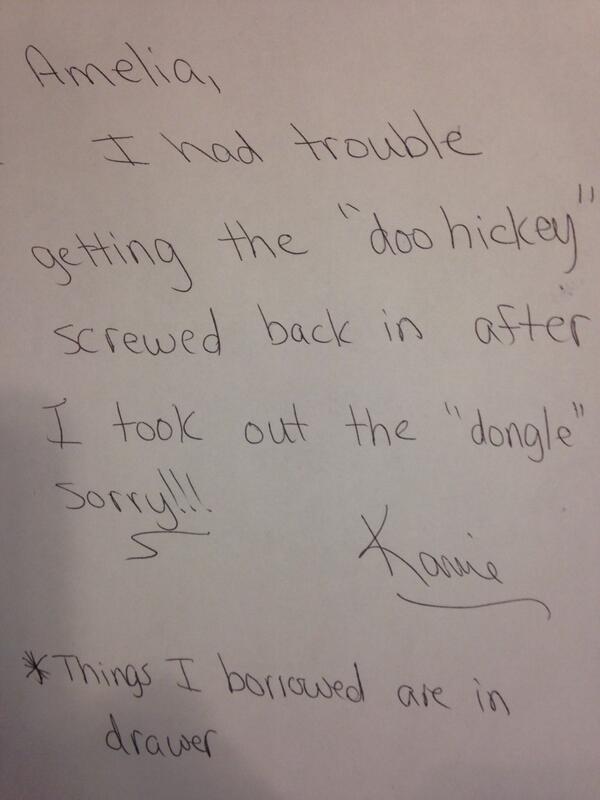 Amelia,
I had trouble
getting the "doohickey"
screwed back in after
I took out the "dongle"
sorry!!!
* Things I borrowed are in
drawer